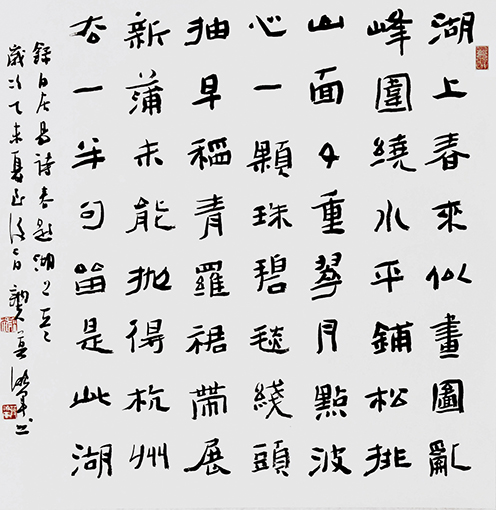 湖上春來似畫圖亂
峰圍繞水平鋪松排
山面千重翠月點波
心一顆珠碧毯綫頭
抽早稻青羅裙帶展
新蒲未能拋得杭州
去一半句留是此湖
錄白居易詩春題湖上
歲次乙未夏